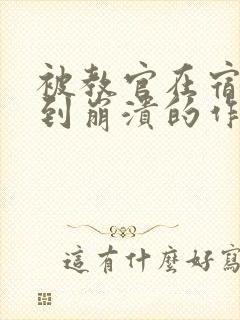 被教官在宿
到崩溃的作
這有什麼好寫